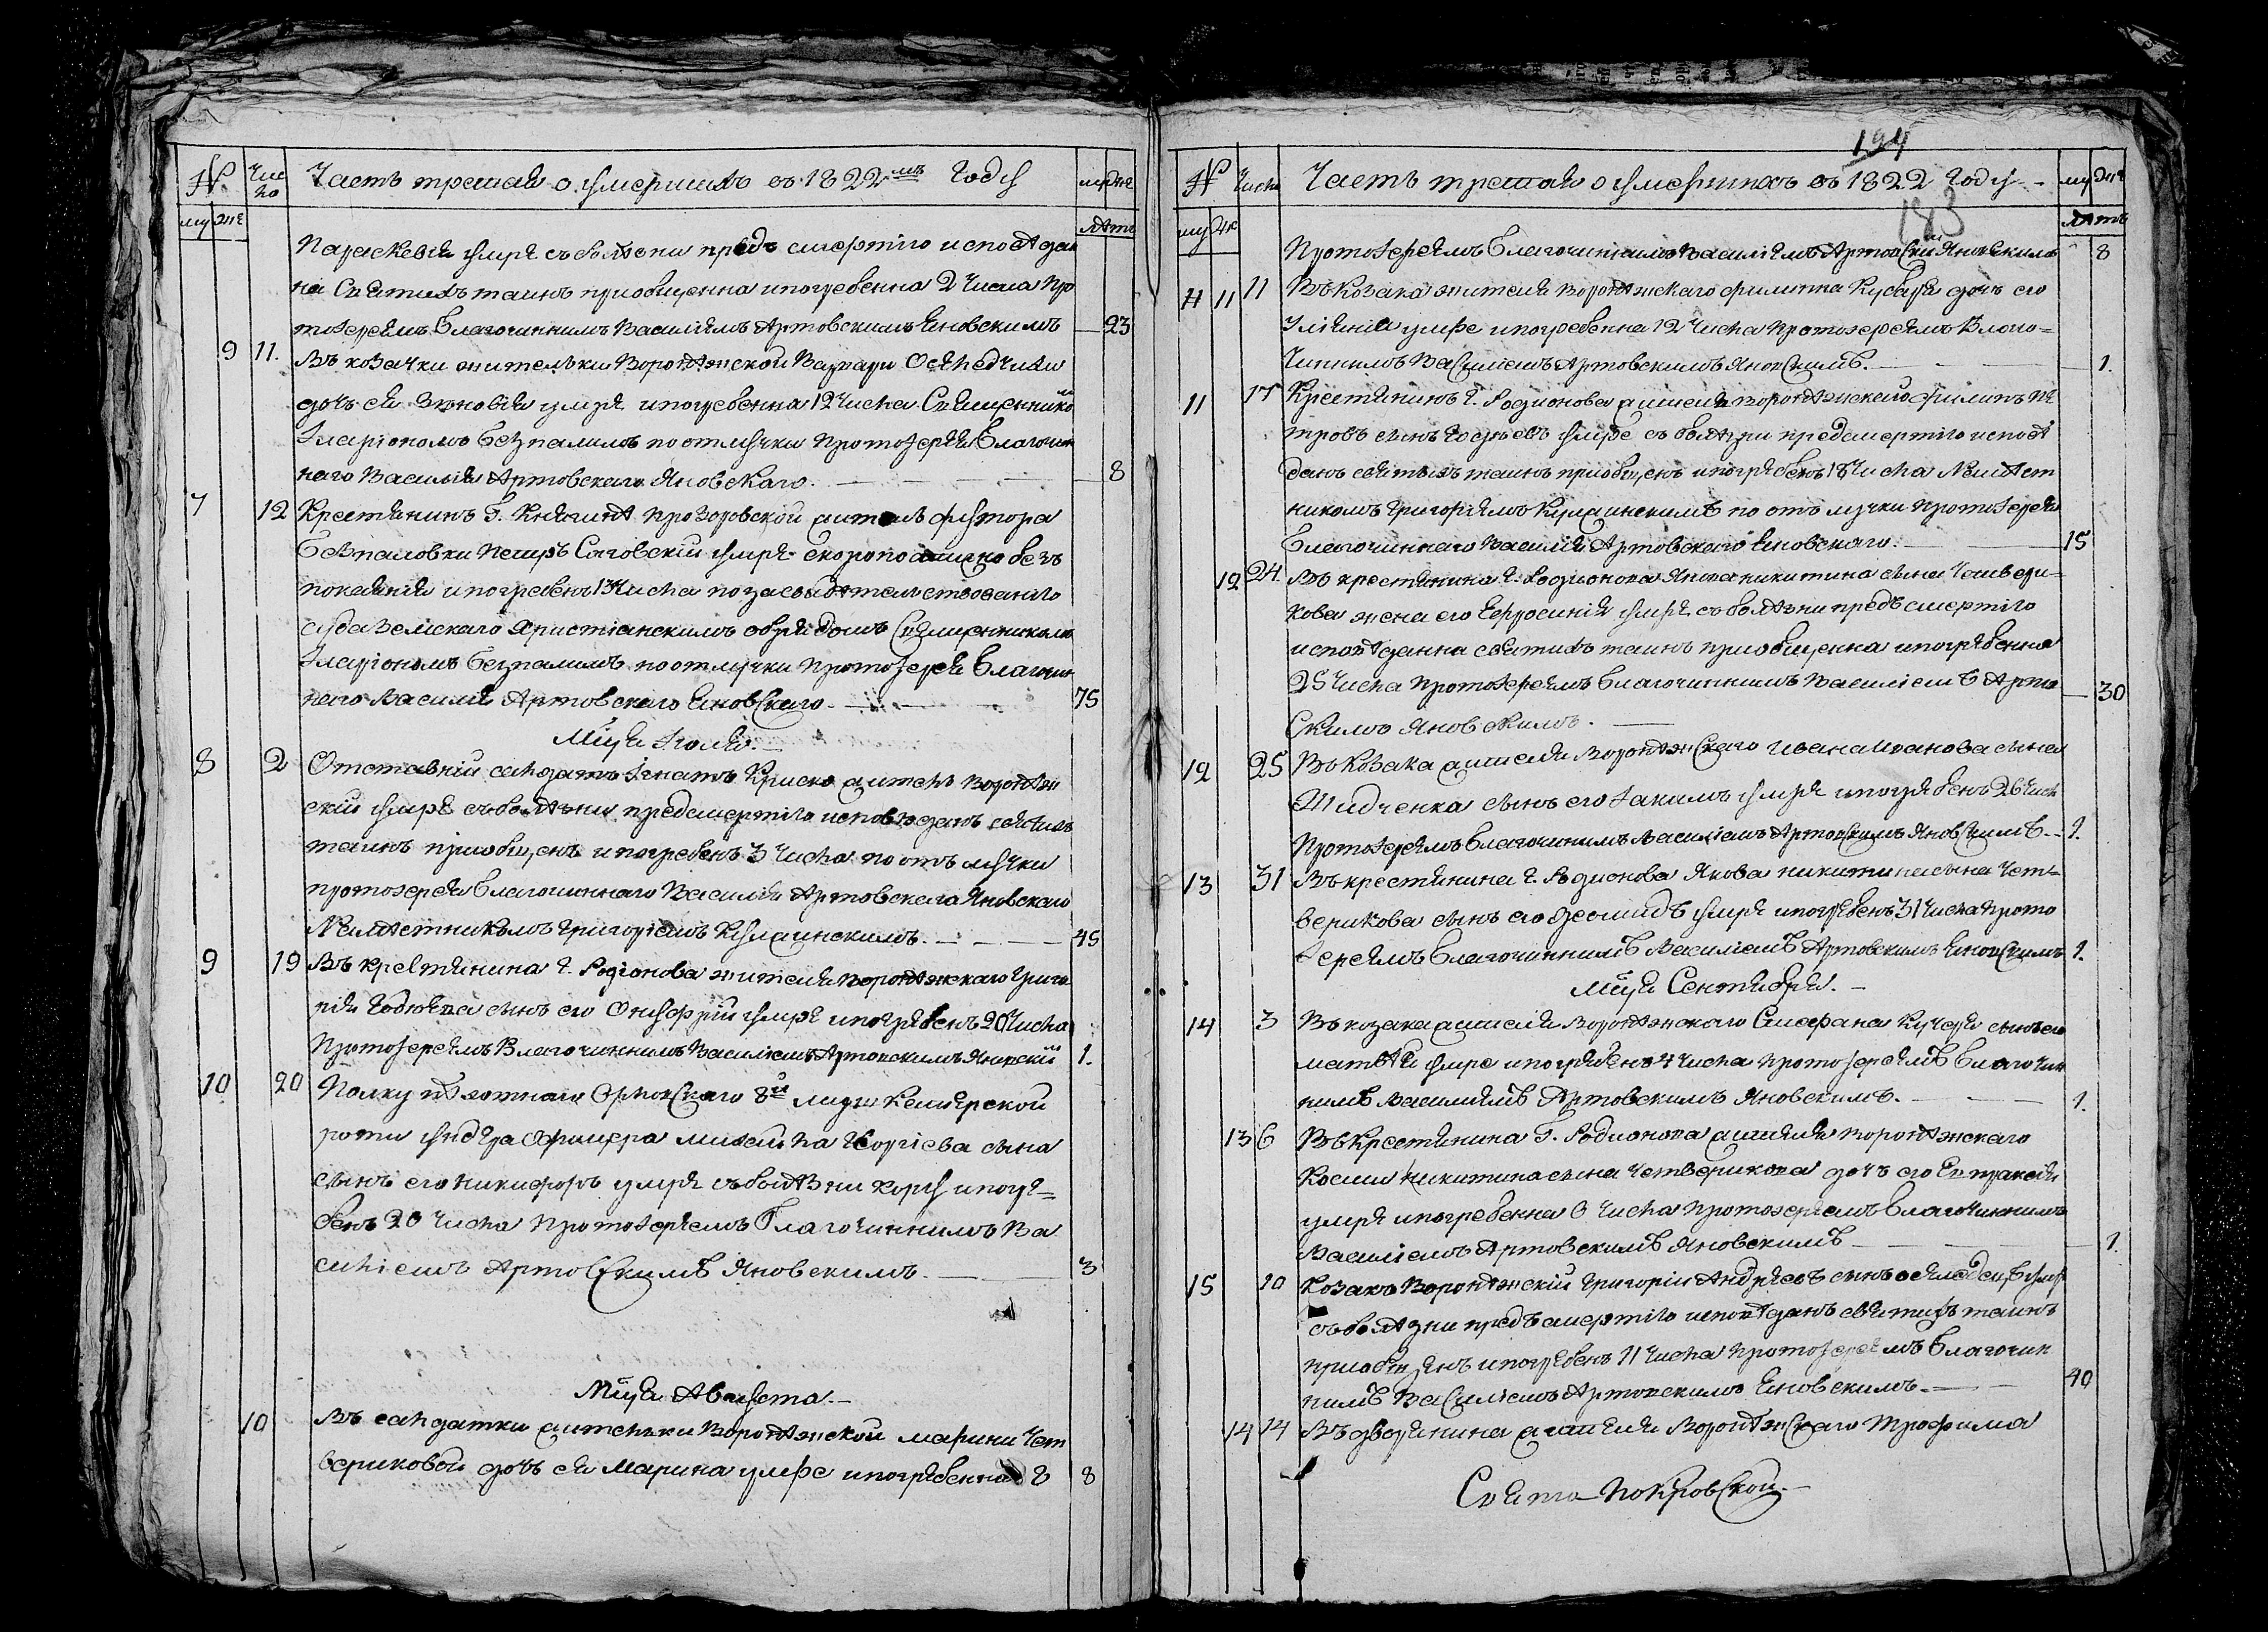 №. Чис
ло Часть третая о умершихъ въ 1822мъ Году му же
му же лѣтъ
Параскевія умре съ болѣзни предъ смертію исповѣдан
на Святихъ таинъ приобщенна и погребенна 2 Числа про
тоіереемъ Благочиннимъ Василіемъ Артовскимъ Яновскимъ 23
9 11. Въ козачки жителъки Воронѣжской Варвари
дочъ ея Зѣновія умре и погребенна 12 Числа Священнико
Іларіономъ Безпалимъ по отлучки Протоіерея Благочин
наго Василія Артовскаго Яновскаго. 8
7 12 Крестянинъ Г. Княгинѣ Прозоровской житель футора
Безпаловки Петръ умре скоропостижно безъ
покаянія и погребенъ 13 Числа по засвидѣтелствованію
суда Земскаго Христіанскимъ обрядомъ Священникомъ
Іларіономъ Безпалимъ по отлучки Протоіерея Благочин
наго Василія Артовскаго Яновскаго. 75
Мця Іюля.
8 2 Отставній салдатъ Ігнатъ Криско житель Воронѣж
скій умре съ болѣзни предсмертію исповѣданъ святихъ
таинъ приобщенъ и погребенъ 3 Числа по отълучки
протоіерея Благочиннаго Василія Артовскаго Яновскаго
Намѣстникомъ Григоріемъ 45
9 19 Въ крестянина Г. Родіонова жителя Воронѣжскаго Григо
рія сынъ его Онуфрій умре и погребенъ 20 Числа
Протоіереемъ Благочиннимъ Василіемъ Артовскимъ Яновскимъ 1.
10 20 Полку 8й
роти ундера Офицера Михаила Георгіева сына
сынъ его Никифоръ умре съ болѣзни кору и погре=
бенъ 20 Числа Протоіереемъ Благочиннимъ Ва
силіемъ Артовскимъ Яновскимъ. 3
Мця Августа.
10 Въ салдатки жителъки Воронѣжской Марини Чет
вериковой дочъ ея Марина умре и погребенна 8
194
183
№ Числа Часть третая о умершихъ въ 1822 Году. му же
му же лѣтъ
Протоіереемъ Благочиннимъ Василіемъ Артовскимъ Яновскимъ 8
11 11 Въ Козака жителя Воронѣжскаго Филиппа Кубаря дочъ его
Уліянія умре и погребенна 12 Числа Протоіереемъ Благо=
чиннимъ Василіемъ Артовскимъ Яновскимъ. 1.
11 17 Крестянинъ Г. Родионова жителя Воронѣжскаго Филипъ Пе
тровъ сынъ умре съ болѣзни предсмертію исповѣ
данъ святыхъ таинъ приобщенъ и погребенъ 18 Числа Намѣст
никомъ Григоріемъ по отълучки Протоіерея
Благочиннаго Василія Артовскаго Яновскаго. 15
12 24. Въ крестянина Г. Родионова Якова Никитина сына Четвери=
кова жена его Ефросинія умре съ болѣзни предъ смертію
исповѣданна святихъ таинъ приобщенна и погребенна
25 Числа Протоіереемъ Благочиннимъ Василіемъ Арто 30
Скимъ Яновскимъ.
12 25 Въ Козака жителя Воронѣжскаго Ивана Иванова сына
сынъ его Іакимъ умре и погребенъ 26 Числ
Протоіереемъ Благочинимъ Василіемъ Артовскимъ Яновскимъ 1.
13 31 Въ крестянина Г. Родионова Якова Никитина сына Чет=
верикова сынъ его Деомидъ умре и погребенъ 31 Числа Прото
іереемъ Благочиннимъ Василіемъ Артовскимъ Яновскимъ 1.
Мця Сентября.
14 3 Въ козака жителя Воронѣжскаго Стефана Кучера сынъ его
Матѣй умре и погребенъ 4 Числа Протоіереемъ Благочин
нимъ Василіемъ Артовскимъ Яновскимъ. 1.
13 6 Въ Крестянина Г. Родионова жителя Воронѣжскаго
Косми Никитина сына Четверикова дочъ его Евпраксія
умре и погребенна 6 Числа Протоіереемъ Благочиннимъ
Василіемъ Артовскимъ Яновскимъ 1.
15 10 Козакъ Воронѣжскій Григорій Андреевъ сынъ умре
съ болѣзни предъ смертію исповѣданъ святихъ таинъ
приобщенъ и погребенъ 11 Числа Протоіереемъ Благочин
нимъ Василіемъ Артовскимъ Яновскимъ. 40
14 14 Въ дворянина жителя Воронѣжскаго Трофима
Свято Покровской.